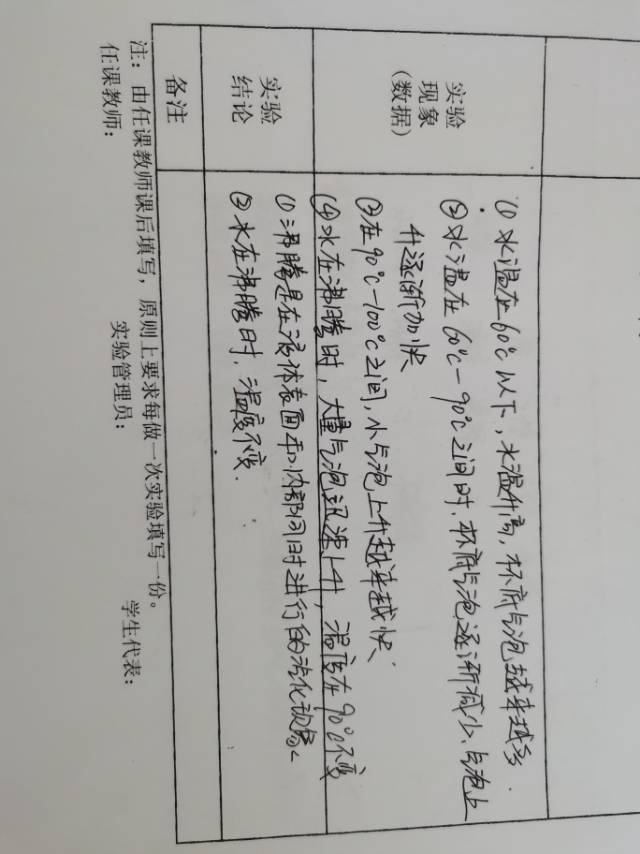 实验
现象
(数据)
(1) 水温在60℃以下，水温升高，杯底气泡越来越多.
② 水温在60℃-90℃之间时，杯底气泡逐渐减少，气泡上
升逐渐加快
③在90℃-100℃之间，小气泡上升越来越快
(4)水在沸腾时，大量气泡迅速上升，温度在90℃不变
实验
结论
(1)沸腾是在液体表面和内部同时进行的汽化现象
② 水在沸腾时，温度不变.
备注
注：由任课教师课后填写，原则上要求每做一次实验填写一份。
任课教师： 实验管理员： 学生代表：